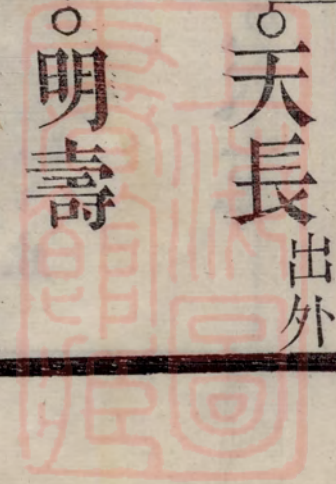 ○天長出外
○明壽